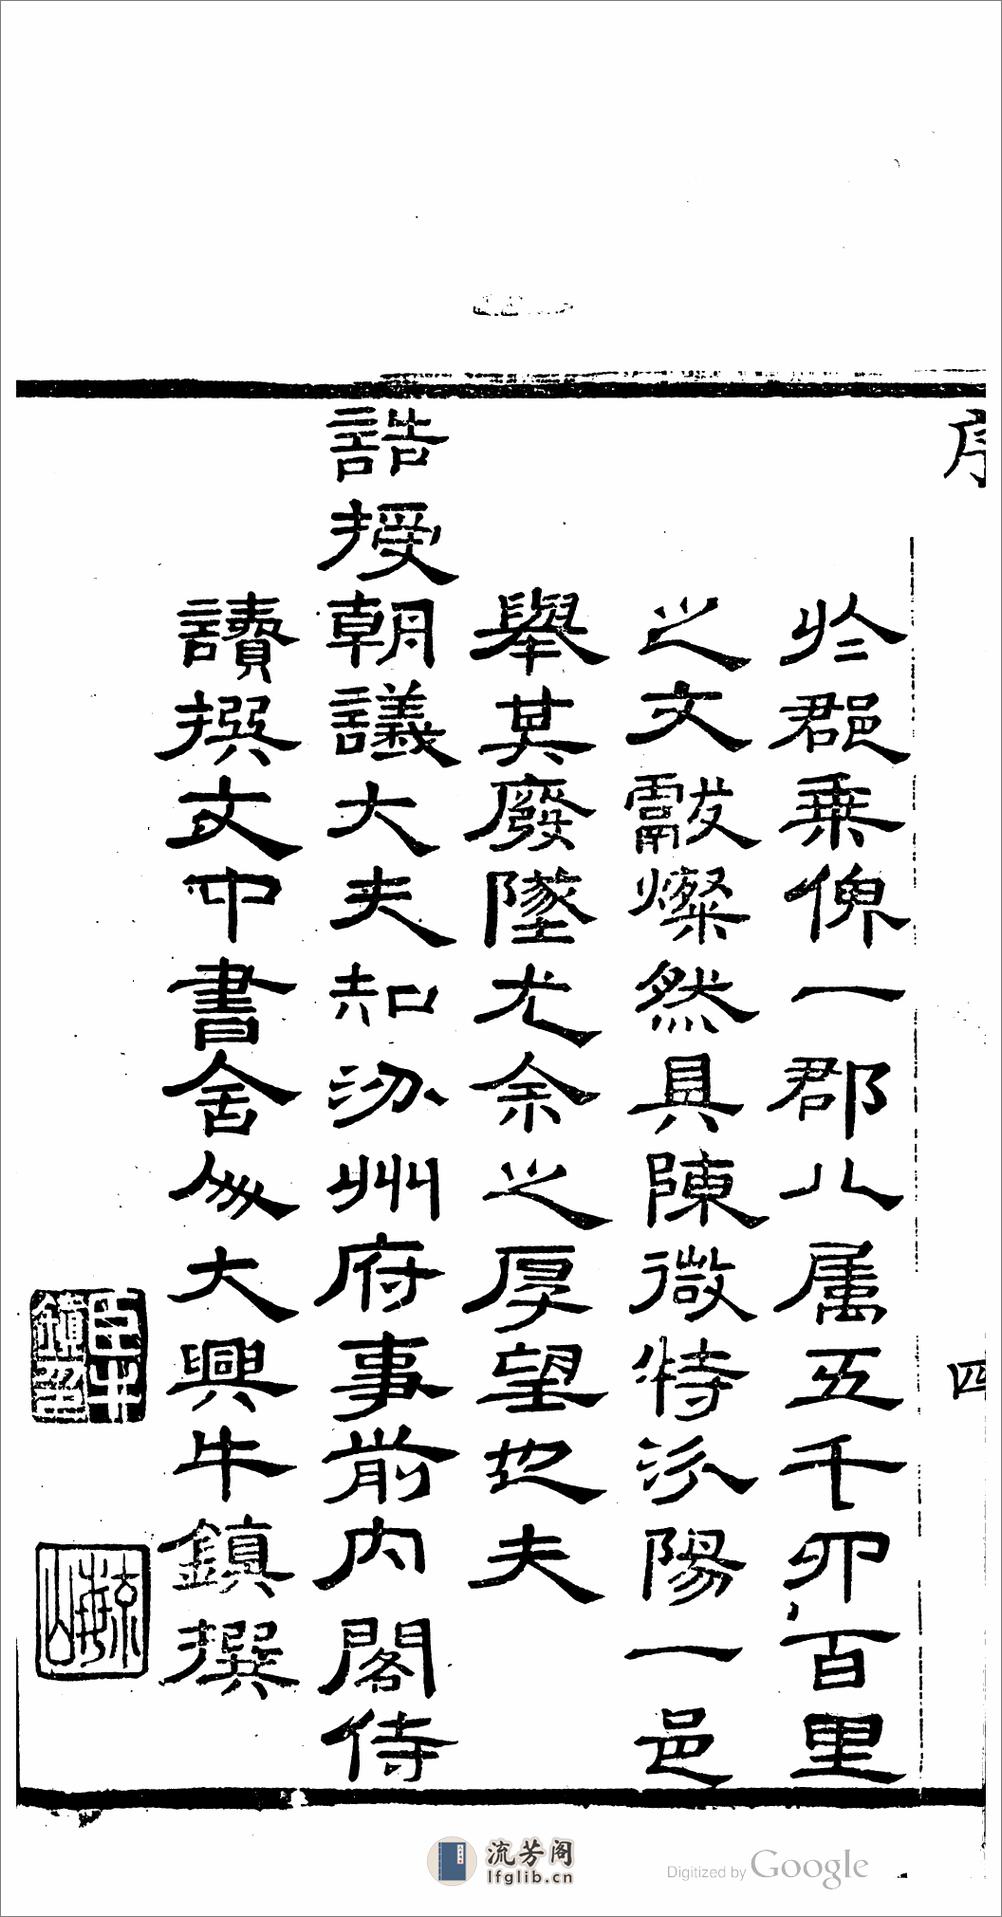 序
四
於郡乘俾一郡八属五千卯百里
之文獻燦然具陳微特汾陽一邑
舉其廢墜尤余之厚望也夫
誥授朝議大夫知汾州府事前内閣侍
讀撰文中書舍人大興牛鎮撰
臣牛鎮印
流芳阁
lfglib.cn
Digitized by Google